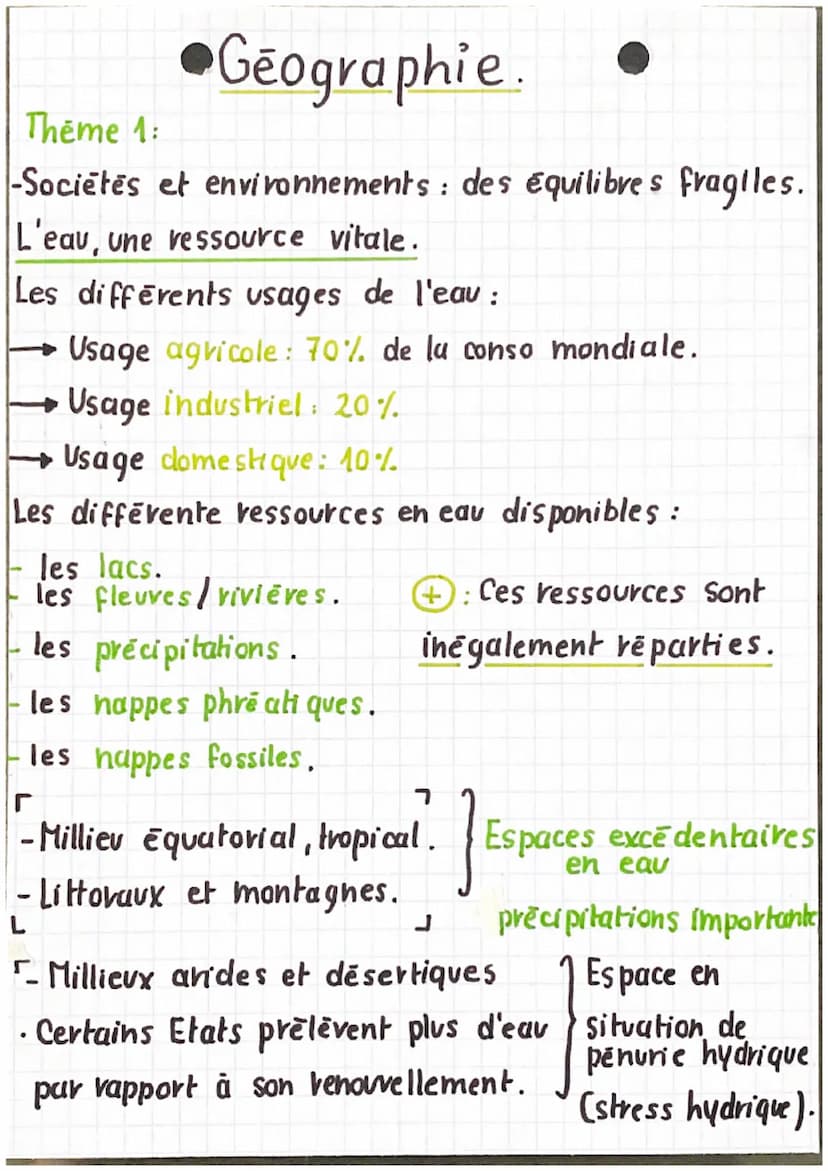 Géographie.
Thème 1:
-Sociétés et environnements : des équilibres fragiles.
L'eau, une ressource vitale.
Les différents usages de l'eau :
→ Usage agricole : 70% de la conso mondiale.
→ Usage industriel : 20%
→ Usage domestique : 10%
Les différente ressources en eau disponibles :
- les lacs.
- les fleuves/rivières.
- les précipitations.
- les nappes phréatiques.
- les nappes fossiles.
+ : Ces ressources sont
inégalement réparties.
- Millieu équatorial, tropical.
- Littoraux et montagnes.
Espaces excédentaires
en eau
précipitations importante
- Millieux arides et désertiques
· Certains Etats prélèvent plus d'eau
par rapport à son renouvellement.
Espace en
situation de
pénurie hydrique
(stress hydrique).